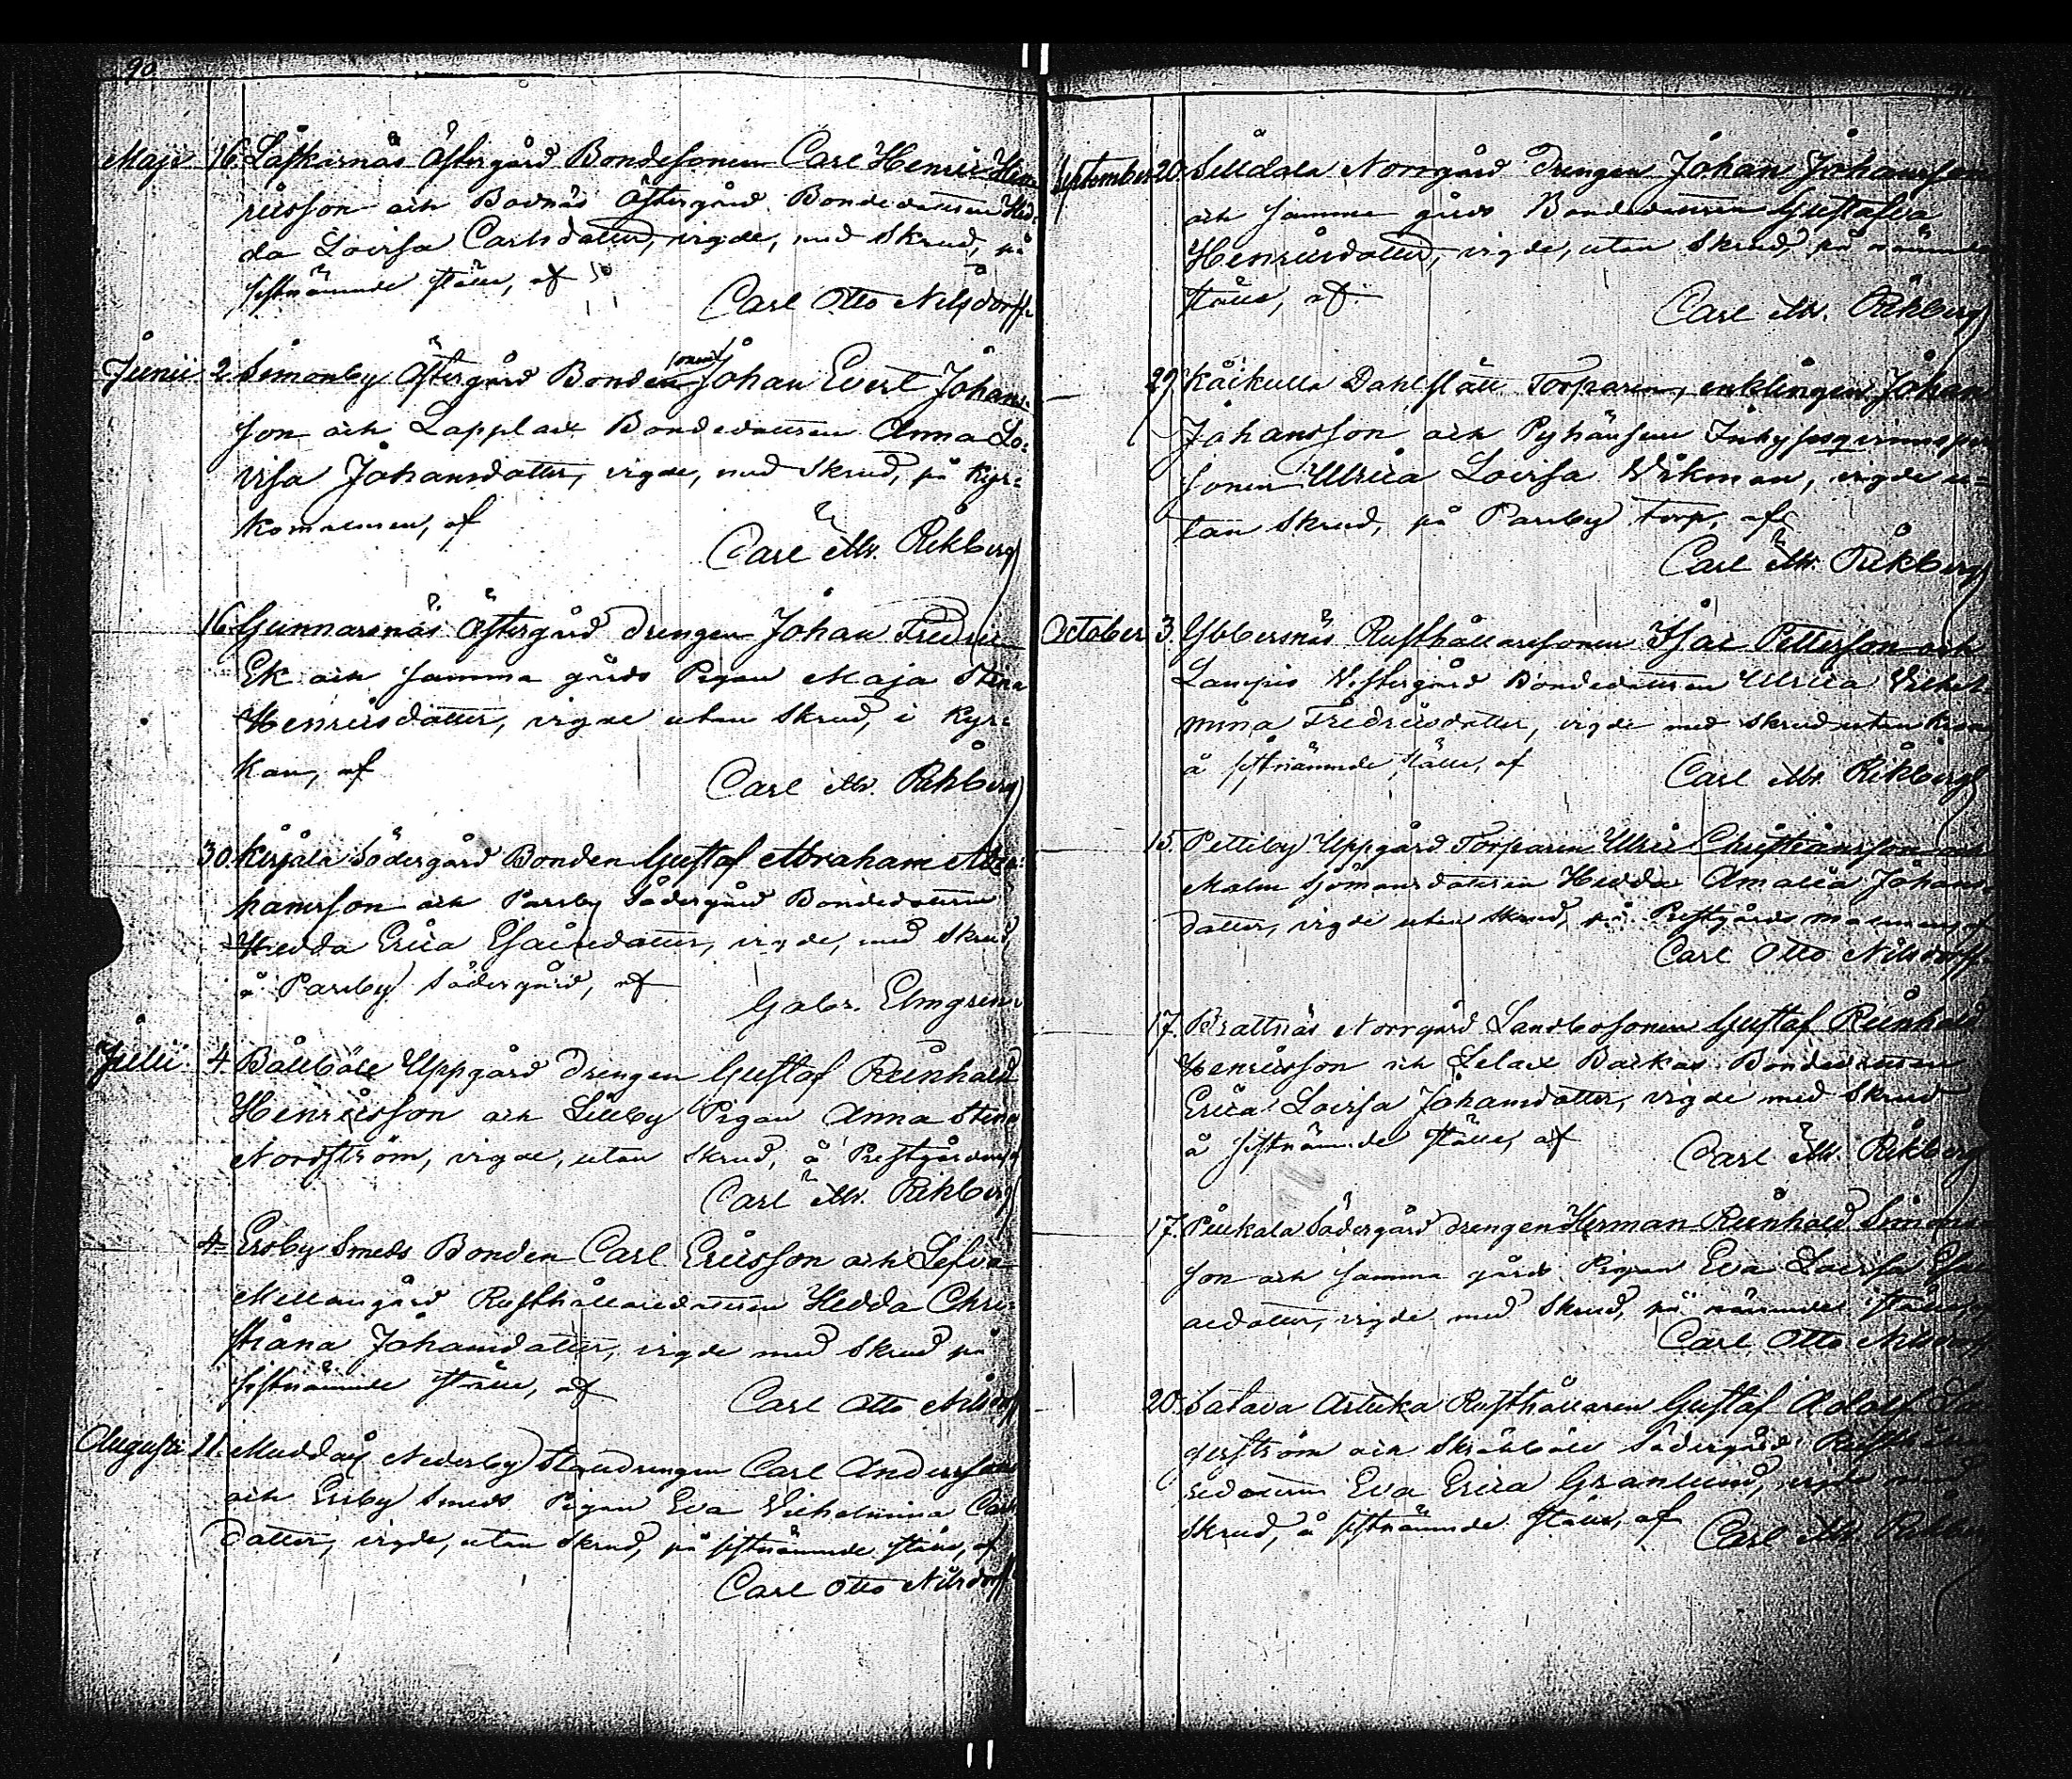 90.
Maji 16. Låfskärnäs Östergård Bondesonen Carl Henric Hen-
ricsson och Bodnäs Östergård Bondedottren Hed-
da Lovisa Carlsdotter, vigde, med Skrud, på
sistnämnde ställe, af
Carl Otto Nilsdorff.
Junii 2. Simonby Östergård Bondesonen Johan Evert Johans-
son och Lapplax Bondedottren Anna Lo-
visa Johansdotter, vigde, med Skrud, på Kyr-
komalmen, af
Carl Mr. Rikberg
16. Gunnarsnäs Östergård drengen Johan Fredric
Ek och samma gårds Pigan Maja Stina
Henricsdotter, vigde utan Skrud, i Kyr-
kan, af
Carl Mr. Rikberg
30. Kirjala Södergård Bonden Gustaf Abraham Abra-
hamsson och Parsby Södergård Bondedottren
Hedda Erica Esaiædotter, vigde, med Skrud,
å Parsby Södergård, af
Gabr. Elmgren.
Julii 4. Bollböle Uppgård Drengen Gustaf Reinhold
Henricsson och Lillby Pigan Anna Stina
Nordström, vigde, utan Skrud, å Prestgården, af
Carl Mr. Rikberg
4. Ersby Smeds Bonden Carl Ericsson och Lofsdal
Mellangård Rusthållaredottren Hedda Chri-
stiana Johansdotter, vigde med Skrud på
sistnämnde ställe, af
Carl Otto Nilsdorff
Augusti 21. Muddais Nederby Drengen Carl Andersson
och Ersby Smeds Pigan Eva Wilhelmina Carls-
dotter, vigde, utan Skrud, på sistnämnde ställe, af
Carl Otto Nilsdorff
September 20. Silldala Norrgård Drengen Johan Johansson
och samma gårds Bondedottren Gustafva
Henricsdotter, vigde, utan Skrud, på nämnde
ställe, af
Carl Mr. Rikberg
29. Kåikulla Dahlslätt Torparen, enklingen Johan
Johansson och Pyhänsuu Inhysesqvinnsper-
sonen Ulrica Lovisa Wikman, vigde u-
tan Skrud, på Parsby torp, af
Carl Mr. Rikberg
October 3. Ybbersnäs Rusthållaresonen Isac Petterson och
Lampis Westergård Bondedottren Ulrica Vilhel-
mina Fredricsdotter, vigde med skrud utan krona
å sistnämnde ställe, af
Carl Mr. Rikberg
15. Pettiby Uppgård Torparen Ulric Christiansson och
Malm Sjömansdottren Hedda Amalia Johans-
dotter, vigde utan Skrud, på Prestgårds malmen, af
Carl Otto Nilsdorff.
17. Brattnäs Norrgård Landbosonen Gustaf Reinhold
Henricsson och Lelax Backas Bondedottren
Erica Lovisa Johansdotter, vigde med Skrud
å sistnämnde ställe, af
Carl Mr. Rikberg
17. Piukala Södergård drengen Herman Reinhold Simons-
son och samma gårds Pigan Eva Lovisa Esai-
aedotter, vigde med Skrud, på nämnde ställe, af
Carl Otto Nilsdorff
20. Satava Artuka Rusthållaren Gustaf Adolf
och Skräbböle Södergårds Rusthålla-
redottren Eva Erica Granlund, vigde med
Skrud, å sistnämnde ställe, af
Carl Mr. Rikberg